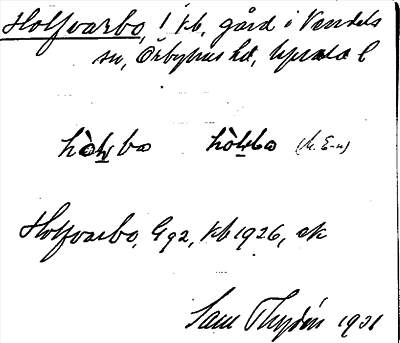 Holfvarbo, 1 kb, gård i Vendels
sn, Örbyhus hd, Upsala l
hòl̠bo hòl̠bo
Holfvarbo, Gg2, kb 1926, ek
Sam Thydén 1931